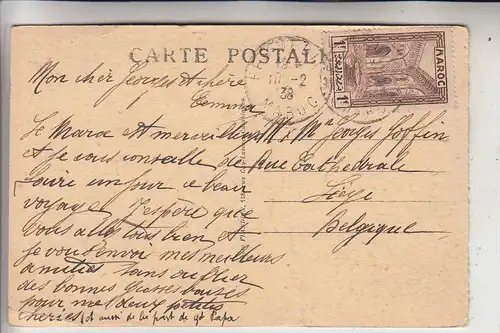 CARTE POSTALE
Mon cher Georges
Emma
Le Maroc et merveilleux
et je vous conseille de
faire un jour ce beau
voyage J'espère que
vous allez tous bien et
je vous envoi mes meilleurs
amitiés sans oublier
des bonnes grosses
pour mes deux petites
chéries et aussi de la part de Papa
Mr & Me Georges Joffin
Rue Cathédrale
Liège
Belgique
10 - 2
38
MAROC
1F 1F
MAROC